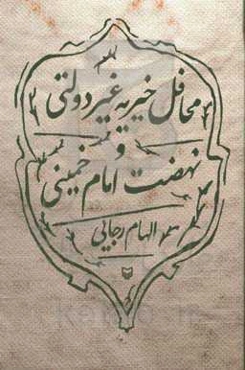 محافل خیریه غیر دولتی
و
نهضت امام خمینی
الهام رجایی